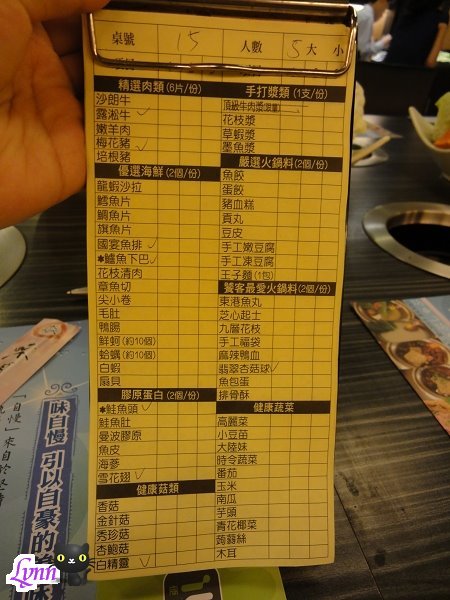 桌號 15 人數 5大 小
精選肉類(6片/份)
沙朗牛
霜淞牛
嫩羊肉
梅花豬
培根豬
優選海鮮(2個/份)
龍蝦沙拉
鱈魚片
鯛魚片
旗魚片
國宴魚排
*鱸魚下巴
花枝清肉
章魚切
尖小卷
毛肚
鴨腸
鮮蚵(約10個)
蛤蠣(約10個)
白蝦
扇貝
膠原蛋白(2個/份)
*鮭魚頭
鮭魚肚
曼波膠原
魚皮
海蔘
雪花翅
健康菇類
香菇
金針菇
秀珍菇
杏鮑菇
白精靈
手打漿類(1支/份)
頂級牛肉漿(限量)
花枝漿
草蝦漿
墨魚漿
嚴選火鍋料(2個/份)
魚餃
蛋餃
豬血糕
貢丸
豆皮
手工嫩豆腐
手工凍豆腐
王子麵(1包)
饕客最愛火鍋料(2個/份)
東港魚丸
芝心起士
九層花枝
手工福袋
麻辣鴨血
翡翠杏菇球
魚包蛋
排骨酥
健康蔬菜
高麗菜
小豆苗
大陸妹
時令蔬菜
番茄
玉米
南瓜
芋頭
青花椰菜
蒟蒻絲
木耳
味自慢 引以自豪的
「自慢」來自於堅持
Lynn